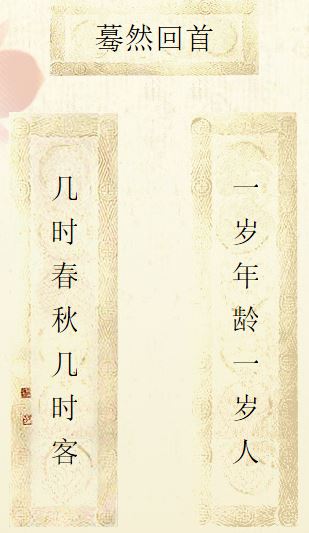 蓦然回首
一岁年龄一岁人
几时春秋几时客